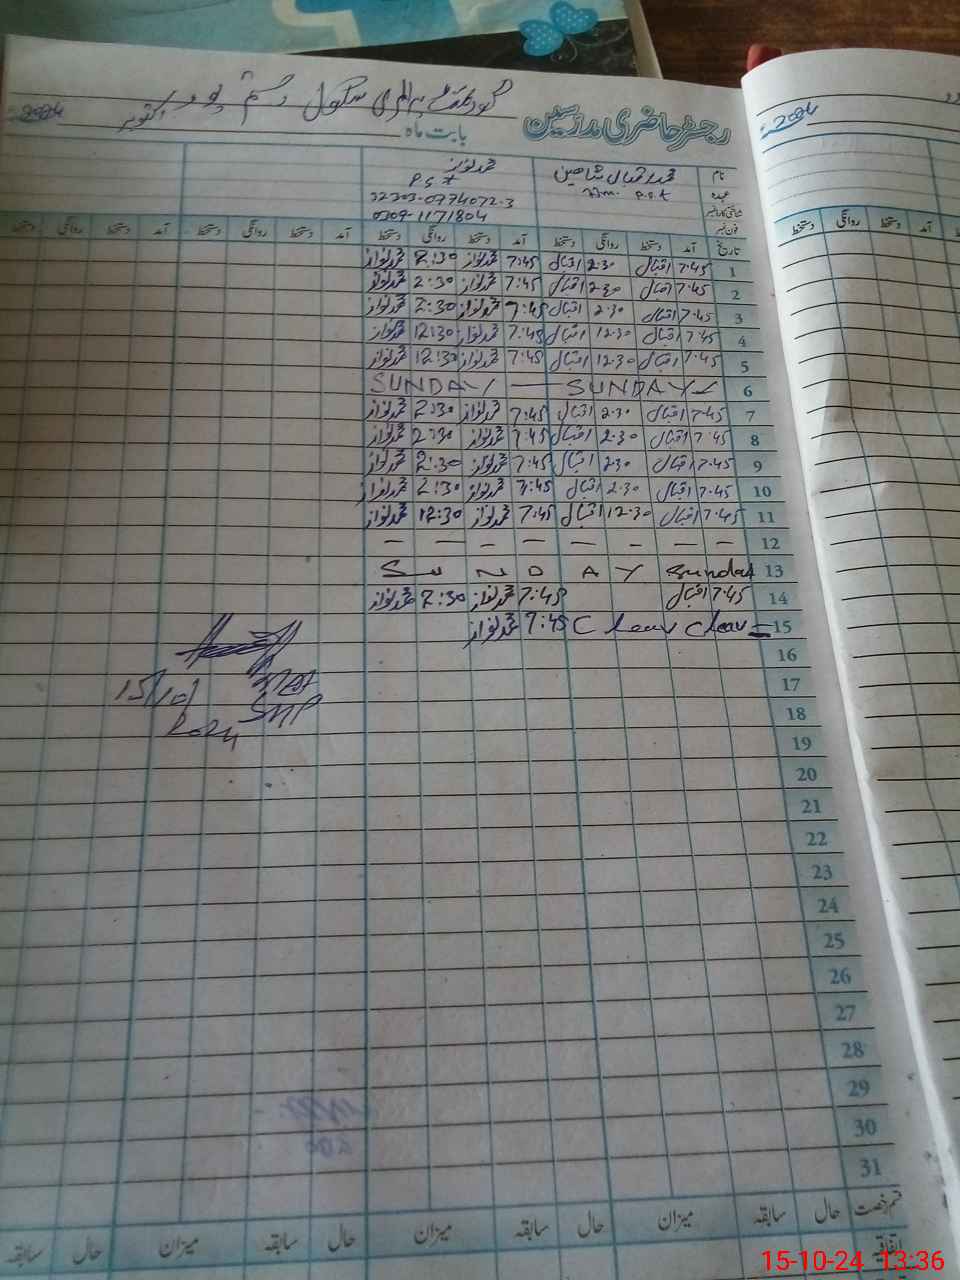 گورنمنٹ پرائمری سکول رستم پور اکتوبر 2024
رجسٹر حاضری مدرسین بابت ماہ
2024
نام محمد اقبال شاھین محمد نواز
عہدہ P.S.T P.S.T
شناختی کارڈ نمبر 32303-0774072-3
فون نمبر 0309-1171804
تاریخ آمد دستخط روانگی دستخط آمد دستخط روانگی دستخط آمد دستخط روانگی دستخط آمد دستخط روانگی دستخط
1 7:45 اقبال 2:30 اقبال 7:45 محمد نواز 2:30 محمد نواز
2 7:45 اقبال 2:30 اقبال 7:45 محمد نواز 2:30 محمد نواز
3 7:45 اقبال 2:30 اقبال 7:45 محمد نواز 2:30 محمد نواز
4 7:45 اقبال 12:30 اقبال 7:45 محمد نواز 12:30 محمد نواز
5 7:45 اقبال 12:30 اقبال 7:45 محمد نواز 12:30 محمد نواز
SUNDAY — SUNDAY 6
7 7:45 اقبال 2:30 اقبال 7:45 محمد نواز 2:30 محمد نواز
8 7:45 اقبال 2:30 اقبال 7:45 محمد نواز 2:30 محمد نواز
9 7:45 اقبال 2:30 اقبال 7:45 محمد نواز 2:30 محمد نواز
10 7:45 اقبال 2:30 اقبال 7:45 محمد نواز 2:30 محمد نواز
11 7:45 اقبال 12:30 اقبال 7:45 محمد نواز 12:30 محمد نواز
— — — — — — — — 12
SUNDAY Sunday 13
14 7:45 اقبال 7:45 محمد نواز 2:30 محمد نواز
15 C leav C leav 7:45 محمد نواز
16
17
15/10/2024
18
19
20
21
22
23
24
25
26
27
28
29
30
31
قسم رخصت حال سابقہ میزان حال سابقہ میزان حال سابقہ میزان حال سابقہ
اتفاقیہ
15-10-24 13:36